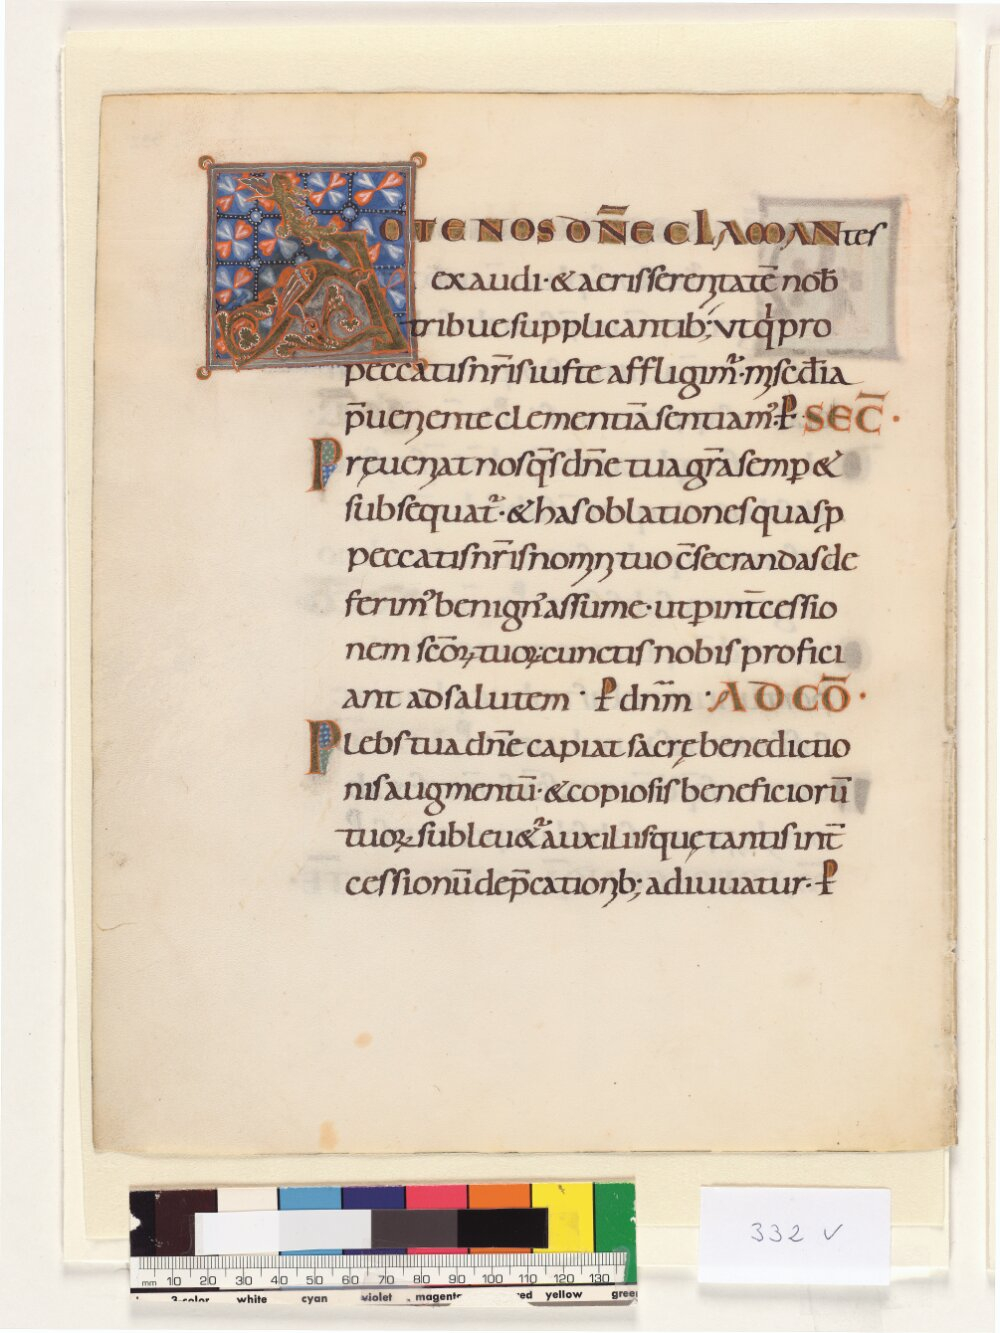 A
O TE NOS DÑE CLAMANtes
exaudi · & aeris serenitatē nob̄
tribue supplicantib; ut q̇ pro
peccatis nr̄is iuste affligimur̃ · misedia
p̄ueniente clementiā sentiam᾽. P SEC̄ ·
Pręueniat nos q̄s dn̄e tua gr̄a semp &
subsequat̃ · & has oblationes quas p
peccatis nr̄is nomini tuo c̄secrandas de
ferim᾽ benign᾽ assume · ut p int̄cessio
nem sc̄oꝝ tuoꝝ cunctis nobis profici
ant ad salutem · P dnm̄ · AD CŌ ·
Plebs tua dn̄e capiat sacrę benedictio
nis augmentū · & copiosis beneficiorū
tuoꝝ subleu&̃ auxiliis quę tantis int̄
cessionū dep̄cationib; adiuuatur · P
332 v
mm 10 20 30 40 50 60 70 80 90 100 110 120 130
3-color white cyan violet magenta red yellow green